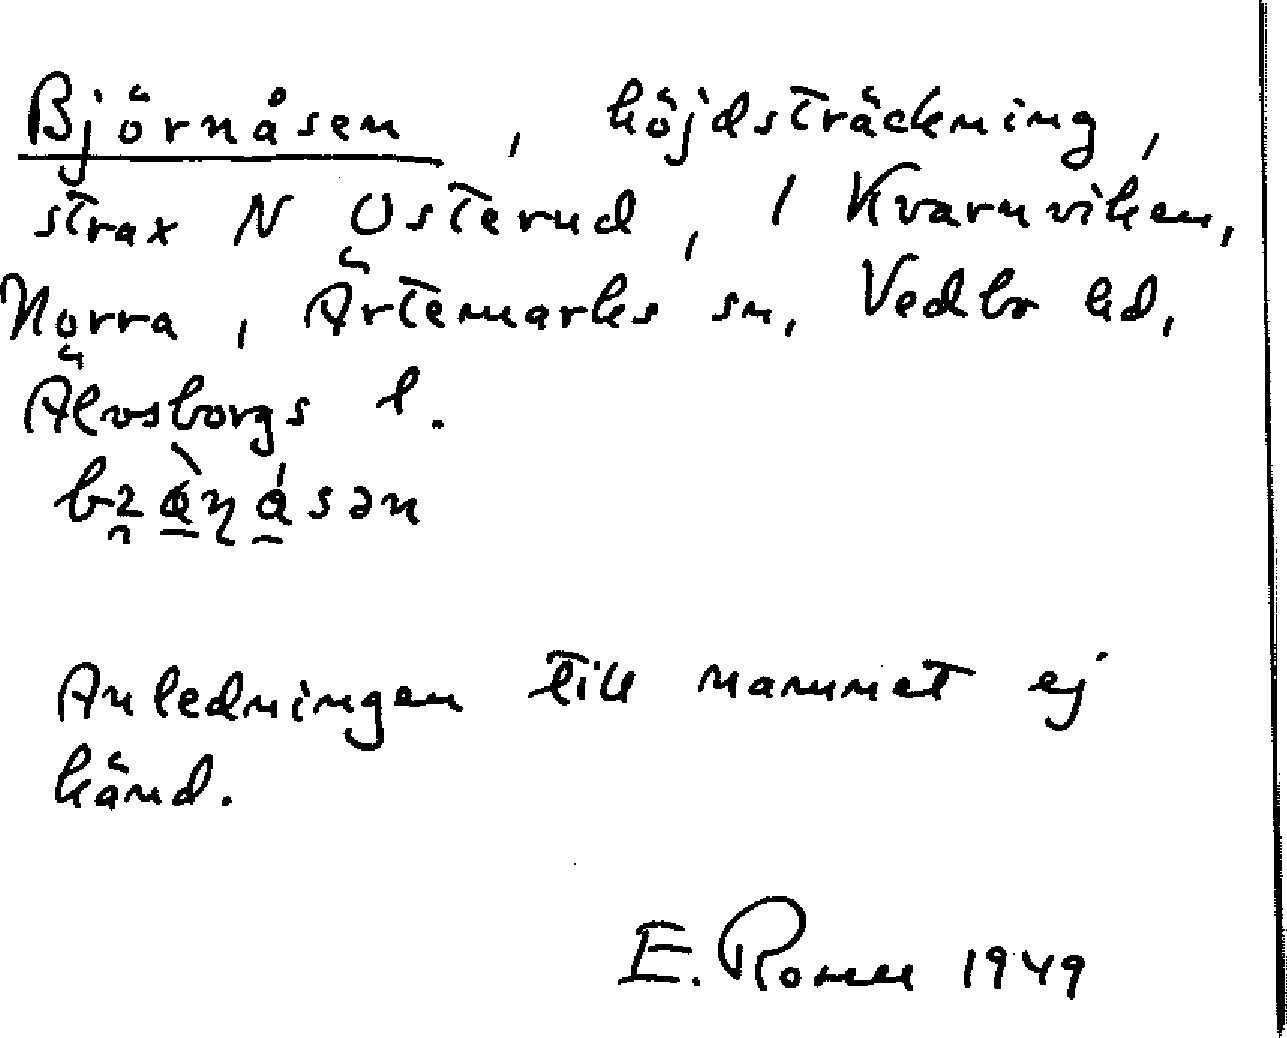 Björnåsen, höjdsträckning,
strax N Usterud, 1 Kvarnviken,
Norra, Ärtemarks sn, Vedbo hd,
Älvsborgs l.
Anledningen till namnet ej
känd.
E. Romm 1949